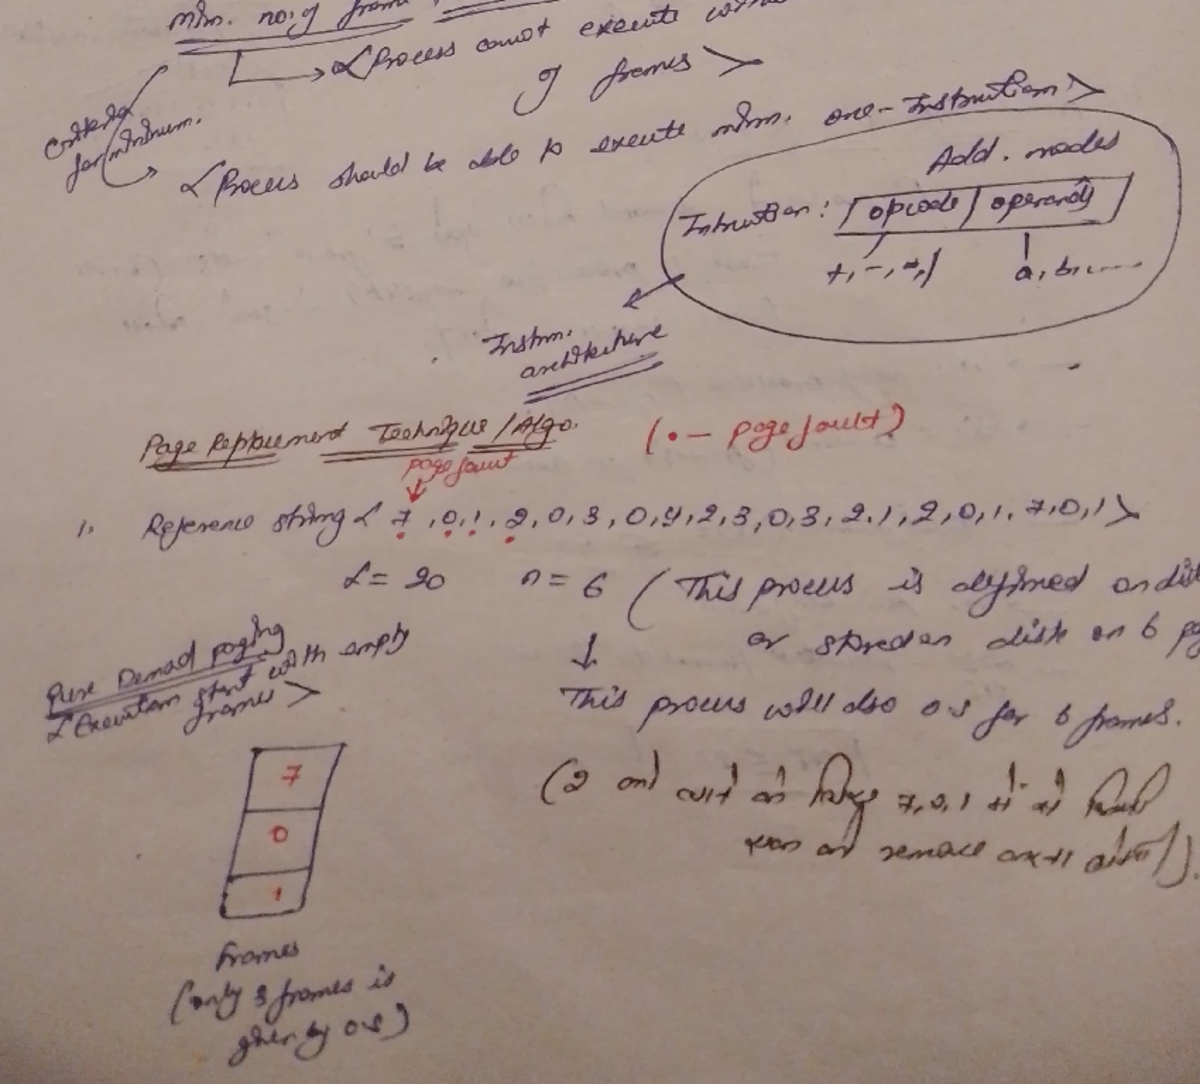 Min. no. of frame
→ <Process cannot execute
of frames >
criteria
for minimum.
<Process should be able to execute mim. one - Instruction>
Add. modes
Intruction: opcode operands
+, -, *, /
a, b, ....
Instrn.
architecture
Page Replacement Technique / Algo. (• - page fault)
page fault
1. Reference string < 7, 0, 1, 2, 0, 3, 0, 4, 2, 3, 0, 3, 2, 1, 2, 0, 1, 7, 0, 1 >
L = 20 n = 6 ( This process is defined on
or stored on disk on 6
Pure Demad paging
<Execution start with empty
frames >
↓
This process will also o.s for 6 frames.
7
0
1
(2 7, 0, 1
Frames
(only 3 frames is
given by o.s)